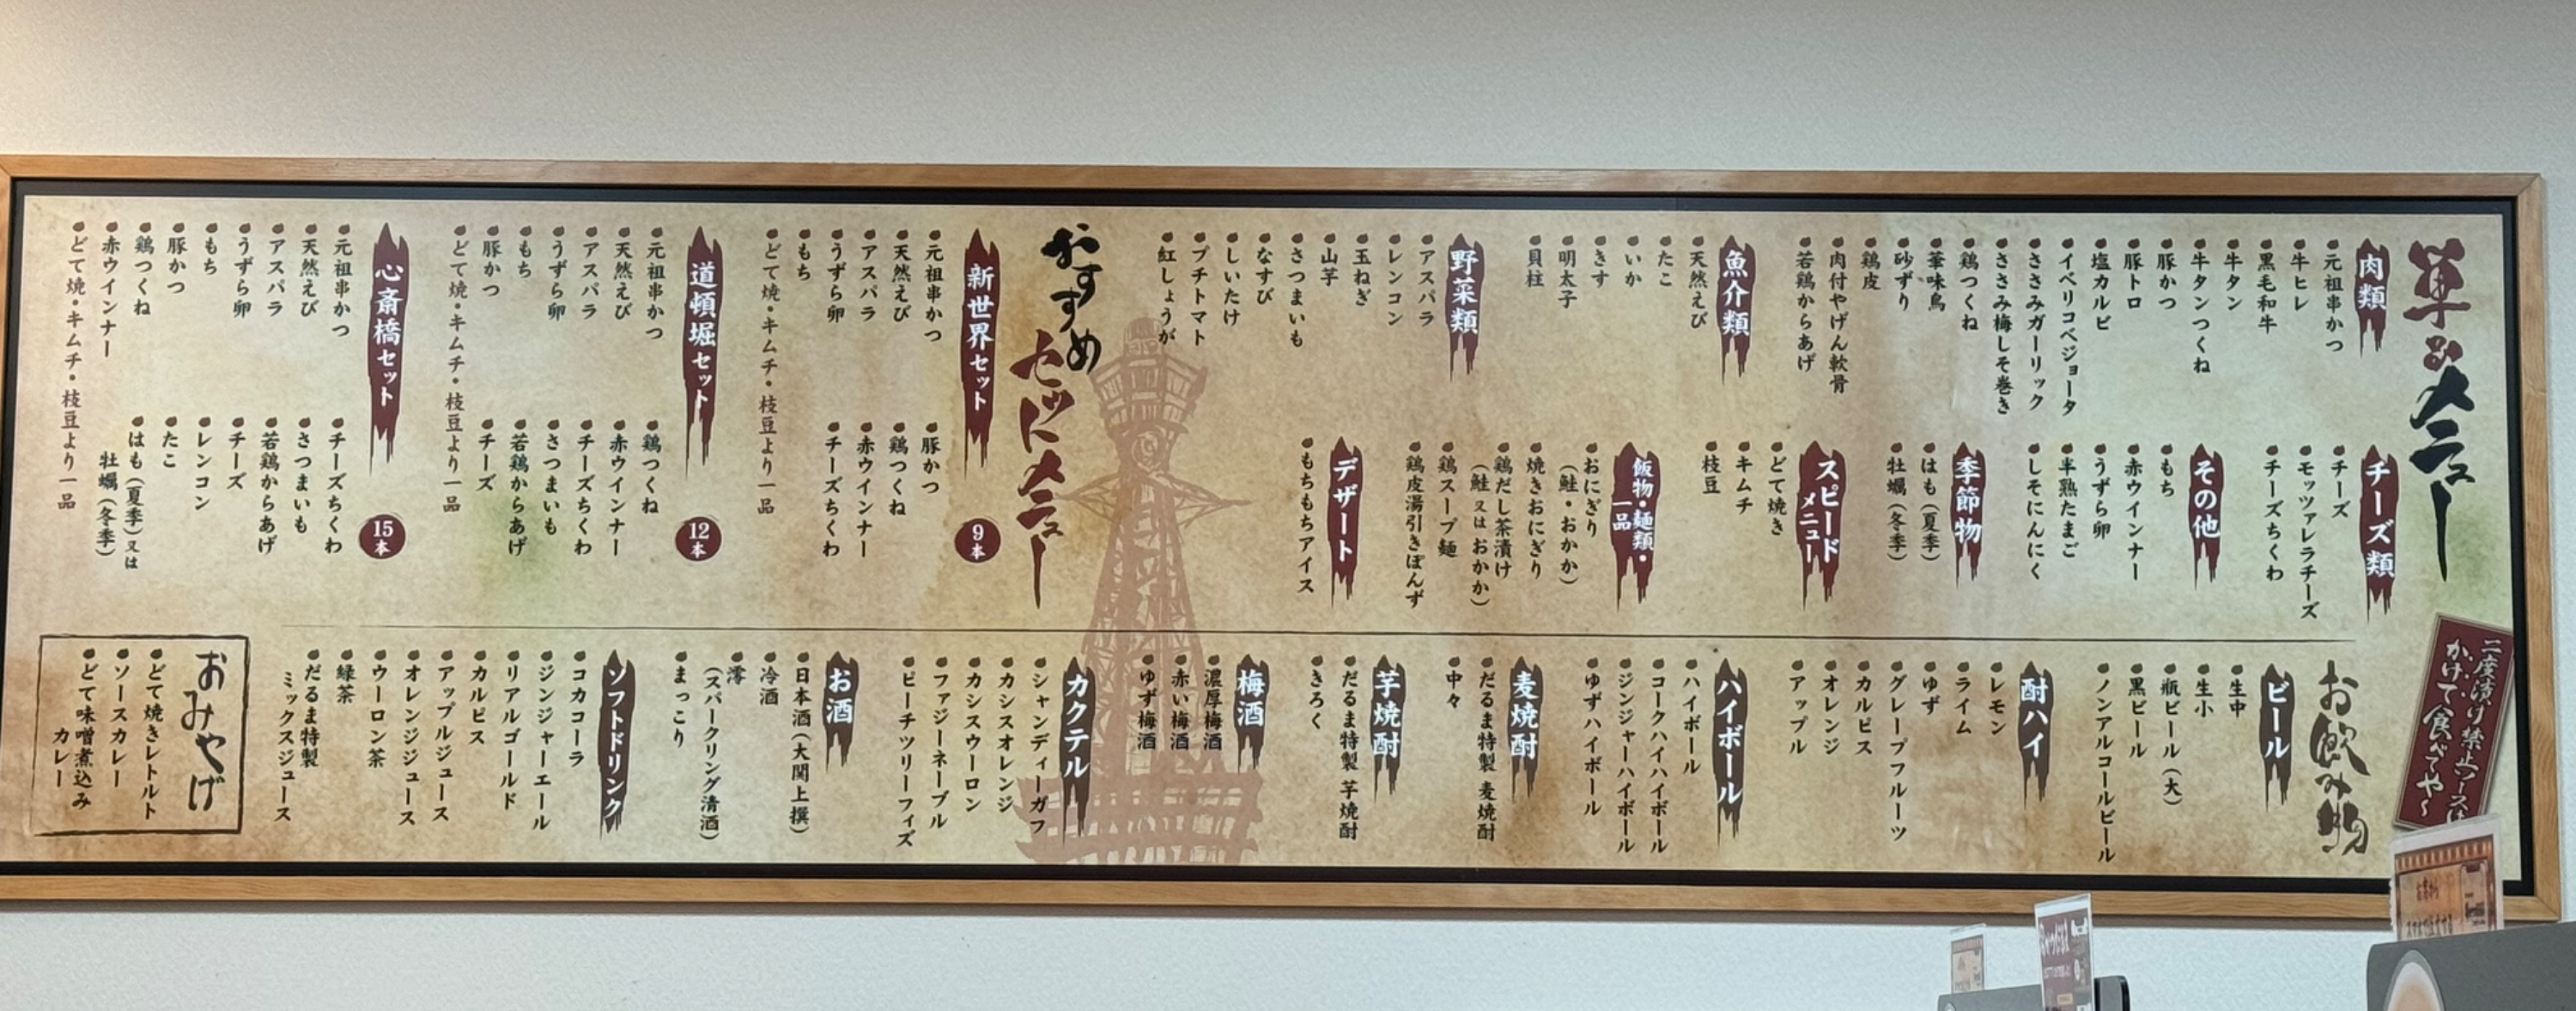 単品メニュー
肉類
元祖串かつ
牛ヒレ
黒毛和牛
牛タン
牛タンつくね
豚かつ
豚トロ
塩カルビ
イベリコベジョータ
ささみガーリック
ささみ梅しそ巻き
鶏つくね
華味鳥
砂ずり
鶏皮
肉付やげん軟骨
若鶏からあげ
魚介類
天然えび
たこ
いか
きす
明太子
貝柱
野菜類
アスパラ
レンコン
玉ねぎ
山芋
さつまいも
なすび
しいたけ
プチトマト
紅しょうが
チーズ類
チーズ
モッツァレラチーズ
チーズちくわ
その他
もち
赤ウインナー
うずら卵
半熟たまご
しそにんにく
季節物
はも(夏季)
牡蠣(冬季)
スピード
メニュー
どて焼き
キムチ
枝豆
飯物・麺類・
一品
おにぎり
(鮭・おかか)
焼きおにぎり
鶏だし茶漬け
(鮭又はおかか)
鶏スープ麺
鶏皮湯引きぽんず
デザート
もちもちアイス
おすすめ
セットメニュー
新世界セット
9本
元祖串かつ
天然えび
アスパラ
うずら卵
もち
豚かつ
鶏つくね
赤ウインナー
チーズちくわ
どて焼・キムチ・枝豆より一品
道頓堀セット
12本
元祖串かつ
天然えび
アスパラ
うずら卵
もち
豚かつ
鶏つくね
赤ウインナー
チーズちくわ
さつまいも
若鶏からあげ
チーズ
どて焼・キムチ・枝豆より一品
心斎橋セット
15本
元祖串かつ
天然えび
アスパラ
うずら卵
もち
豚かつ
鶏つくね
赤ウインナー
チーズちくわ
さつまいも
若鶏からあげ
チーズ
レンコン
たこ
はも(夏季)又は
牡蠣(冬季)
どて焼・キムチ・枝豆より一品
二度漬け禁止ソースは
かけて食べてや〜
お飲み物
ビール
生中
生小
瓶ビール(大)
黒ビール
ノンアルコールビール
酎ハイ
レモン
ライム
ゆず
グレープフルーツ
カルピス
オレンジ
アップル
ハイボール
ハイボール
コークハイハイボール
ジンジャーハイボール
ゆずハイボール
麦焼酎
だるま特製 麦焼酎
中々
芋焼酎
だるま特製 芋焼酎
きろく
梅酒
濃厚梅酒
赤い梅酒
ゆず梅酒
カクテル
シャンディーガフ
カシスオレンジ
カシスウーロン
ファジーネーブル
ピーチツリーフィズ
お酒
日本酒(大関上撰)
冷酒
澪
(スパークリング清酒)
まっこり
ソフトドリンク
コカコーラ
ジンジャーエール
リアルゴールド
カルピス
アップルジュース
オレンジジュース
ウーロン茶
緑茶
だるま特製
ミックスジュース
おみやげ
どて焼きレトルト
ソースカレー
どて味噌煮込み
カレー